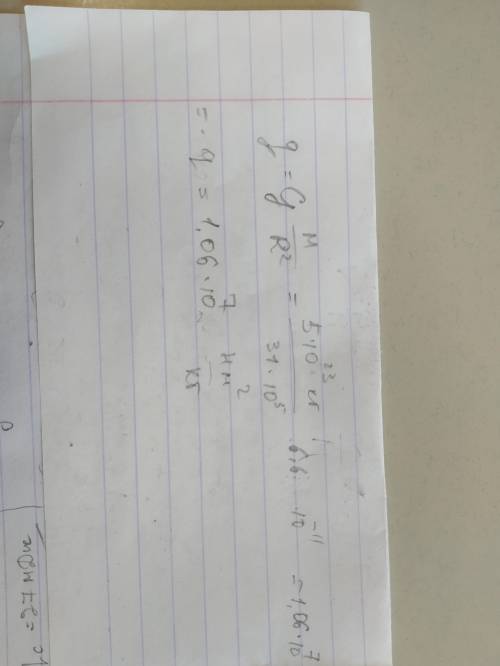 g = G M/R² = 5·10²³ кг / 31·10⁵ · 6,6 · 10⁻¹¹ = 1,06·10⁷
= · g = 1,06·10⁷ Н м²/кг